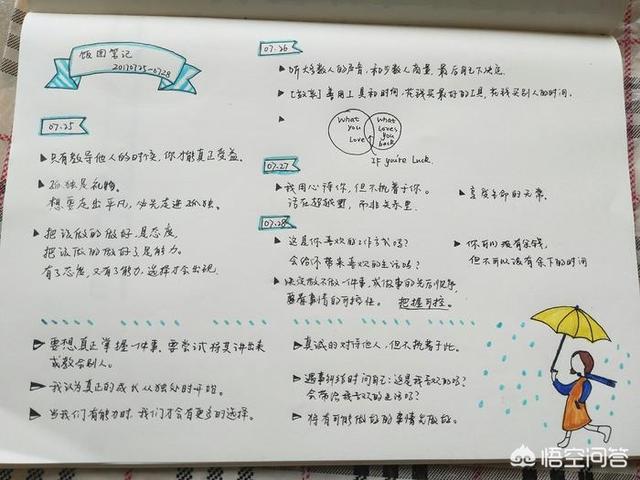 饭团笔记
20170725-0728
07.25
▶只有教导他人的时候,你才能真正受益。
▶孤独是礼物。
想要走出平凡,必先走进孤独。
▶把该做的做好,是态度,
把该做的做好了是能力。
有了态度,又有了能力,选择才会出现。
07.26
▶听大多数人的声音,和少数人商量,最后自己下决定。
▶[效率]善用工具和时间,花钱买最好的工具,花钱买别人的时间。
▶
What
You
Love
What
Loves
You
back
If you're Luck.
07.27
▶我用心待你,但不执着于你。
活在缘起里,而非关系里.
▶享受生命的无常.
07.28
▶这是你喜欢的工作方式吗?
会给你带来喜欢的生活吗?
▶决定做不做一件事,或做事的先后顺序,
要看事情的可控性。 把握可控。
▶你可以没有余钱,
但不可以没有余下的时间
▶要想真正掌握一件事,要尝试将其讲出来
或教会别人。
▶我认为真正的成长从独处时开始。
▶当我们有能力时,我们才会有更多的选择。
▶真诚的对待他人,但不执着于此。
▶遇事纠结时问自己:这是我喜欢的吗?
会带给我喜欢的生活吗?
▶将有可能做好的事情先做好。
悟空问答